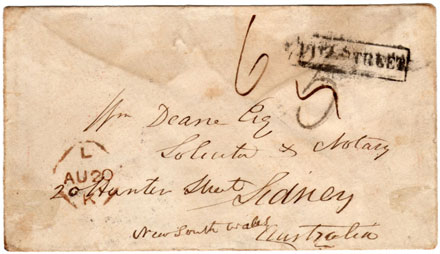 6
5
STREET
Wm Deane Esq
Solicitor & Notary
L
AU 20
K
20 Hunter Street Sidney
New South Wales
Australia